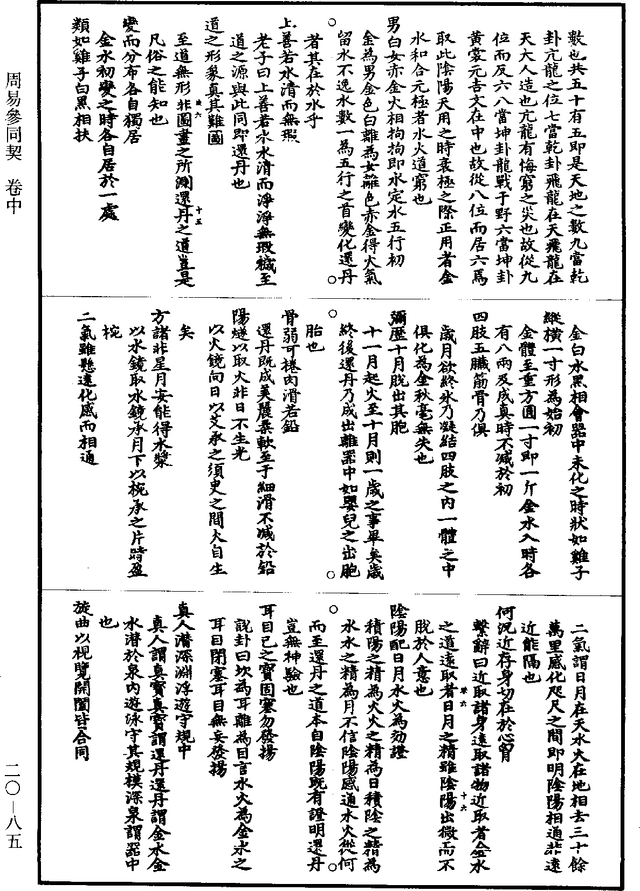 周易參同契　卷中
數也共五十有五即是天地之數九當乾
卦亢龍之位七當乾卦飛龍在天飛龍在
天大人造也亢龍有悔窮之災也故從九
位而反六八當坤卦龍戰于野六當坤卦
黃裳元吉文在中也故從八位而居六爲
取此陰陽天用之時衰極之際正用者金
水和合元極者水火道窮也
男白女赤金火相拘拘即水定水五行初
金為男金色白離為女離色赤金得火氣
留水不逸水數一為五行之首變化還丹
者其在於水乎
上善若水清而無瑕
老子曰上善若水水清而淨淨無瑕穢至
道之源與此同即還丹也
道之形象真其難圖
至道無形非圖畫之所測還丹之道豈是
卷六
十五
凡俗之能知也
變而分布各自獨居
金水初變之時各自居於一處
類如雞子白黑相扶
金白水黑相會器中未化之時狀如雞子
縱橫一寸形為始初
金體至重方圓一寸即一斤金水入時各
有八兩及成真時不減於初
四肢五臟筋骨乃俱
歲月欲終氷乃凝結四肢之內一體之中
俱化為金秋毫無失也
彌歷十月脫出其胞
十一月起火至十月則一歲之事畢矣歲
終後還丹乃成出離器中如嬰兒之出胞
胎也
骨弱可捲肉滑若鉛
還丹既成美麗柔軟至于細滑不減於鉛
陽燧以取火非日不生光
以火鏡向日以艾承之須臾之間火自生
矣
方諸非星月安能得水漿
以水鏡取水鏡承月下以椀承之片時盈
椀
二氣雖懸遠化感而相通
二氣謂日月在天水火在地相去三十餘
萬里感化咫尺之間即明陰陽相通非遠
近能隔也
何況近存身切在於心胷
繫辭曰近取諸身遠取諸物近取者金水
之道遠取者日月之精雖陰陽出微而不
卷六
十六
脫於人意也
陰陽配日月水火為効證
積陽之精為火火之精為日積陰之精為
水水之精為月不信陰陽感通水火從何
而至還丹之道本自陰陽既有證明還丹
豈無神驗也
耳目己之寶固塞勿發揚
說卦曰坎為耳離為目言水火為金水之
耳目閉塞耳目無妄發揚
真人潛深淵浮遊守規中
真人謂真寶真寶謂還丹還丹謂金水金
水潛於泉內遊泳守其規模深泉謂器中
也
旋曲以視覽開闔皆合同
二〇—八五